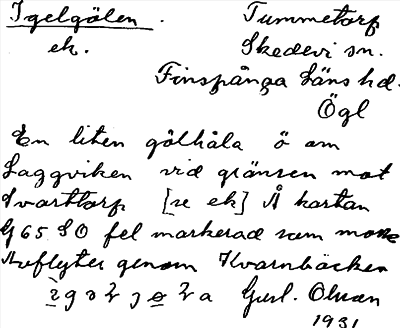 Igelgölen. Tummetorp
ek. Skedevi sn.
Finspånga Läns hd.
Ögl
En liten gölhåla ö om
Laggviken vid gränsen mot
Svarttorp [se ek] Å kartan
G 65 SO fel markerad som mosse
Avflyter genom Kvarnbäcken
Gurl. Olsson
1931